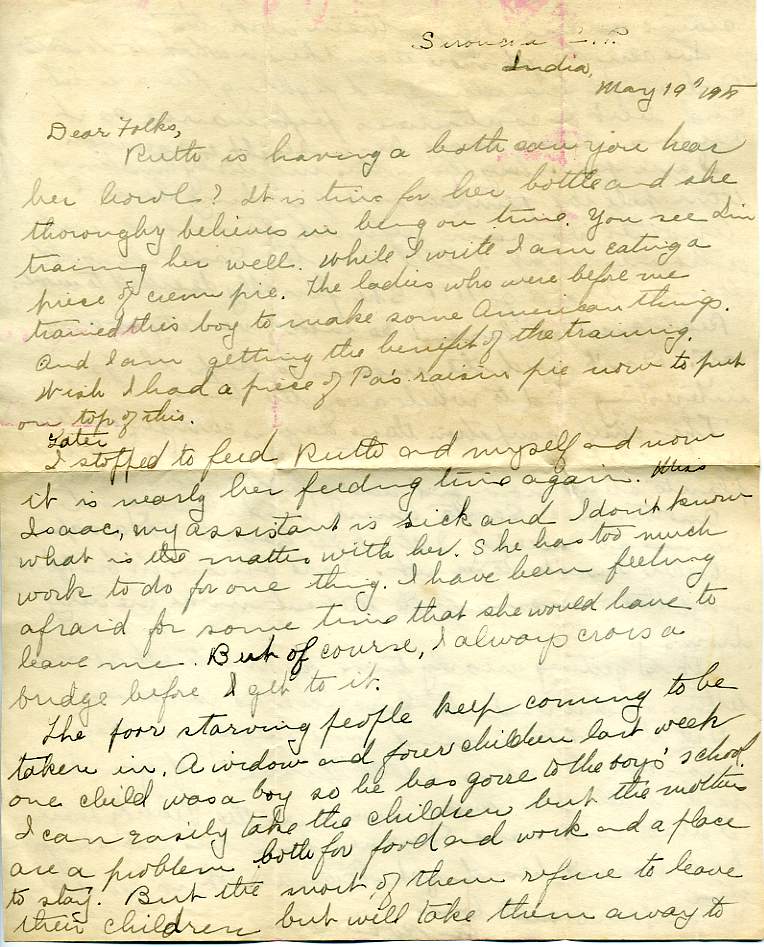 Sironcha C.P.
India,
May 19th
Dear Folks,
Ruth is having a bath can you hear
her howl? It is time for her bottle and she
thoroughy believes in being on time. You see I'm
training her well. While I write I am eating a
piece of cream pie. The ladies who were before me
trained this boy to make some American things.
And I am getting the benefit of the training.
Wish I had a piece of Pa's raisin pie now to put
on top of this.
Later
I stopped to feed Ruth and myself and now
it is nearly her feeding time again. Miss
Isaac, my assistant is sick and I don't know
what is the matter with her. She has too much
work to do for one thing. I have been feeling
afraid for some time that she would have to
leave me. But of course, I always cross a
bridge before I get to it.
The poor starving people keep coming to be
taken in. A widow and four children last week
one child was a boy so he has gone to the boys' school.
I can easily take the children but the mothers
are a problem both for food and work and a place
to stay. But the most of them refuse to leave
their children but will take them away to